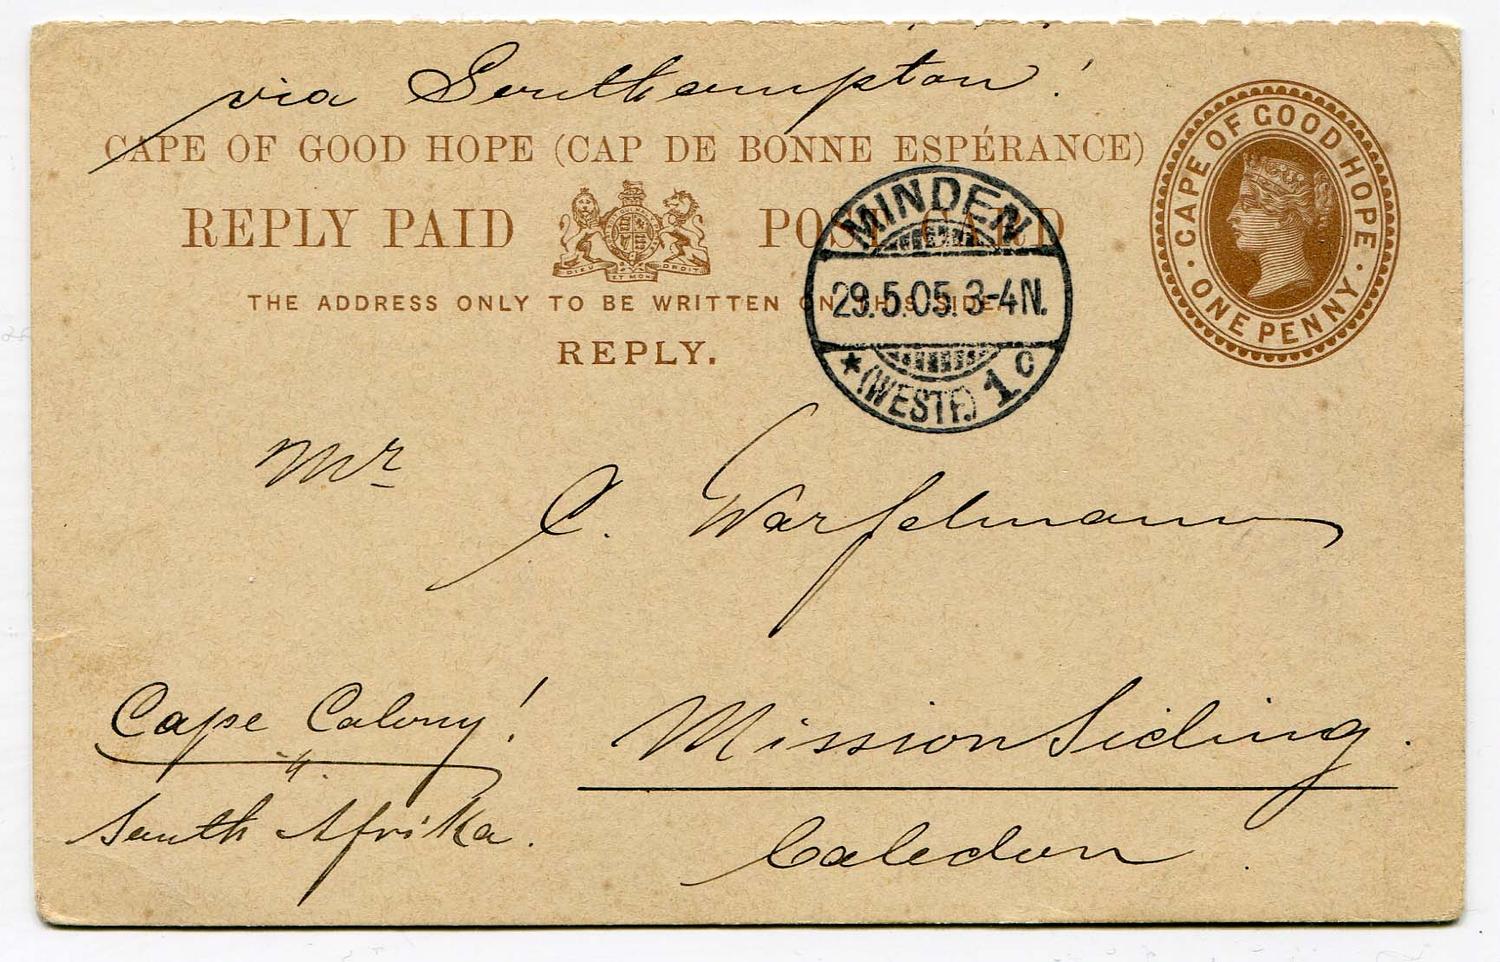 via Southampton!
CAPE OF GOOD HOPE (CAP DE BONNE ESPÉRANCE)
REPLY PAID POST CARD
DIEU ET MON DROIT
THE ADDRESS ONLY TO BE WRITTEN ON THIS SIDE.
REPLY.
CAPE OF GOOD HOPE
ONE PENNY
MINDEN
29.5.05. 3-4N.
* (WESTF.) 1c
Mr
C. Warfelmann
Cape Colony!
South Afrika.
Mission Siding.
Caledon.